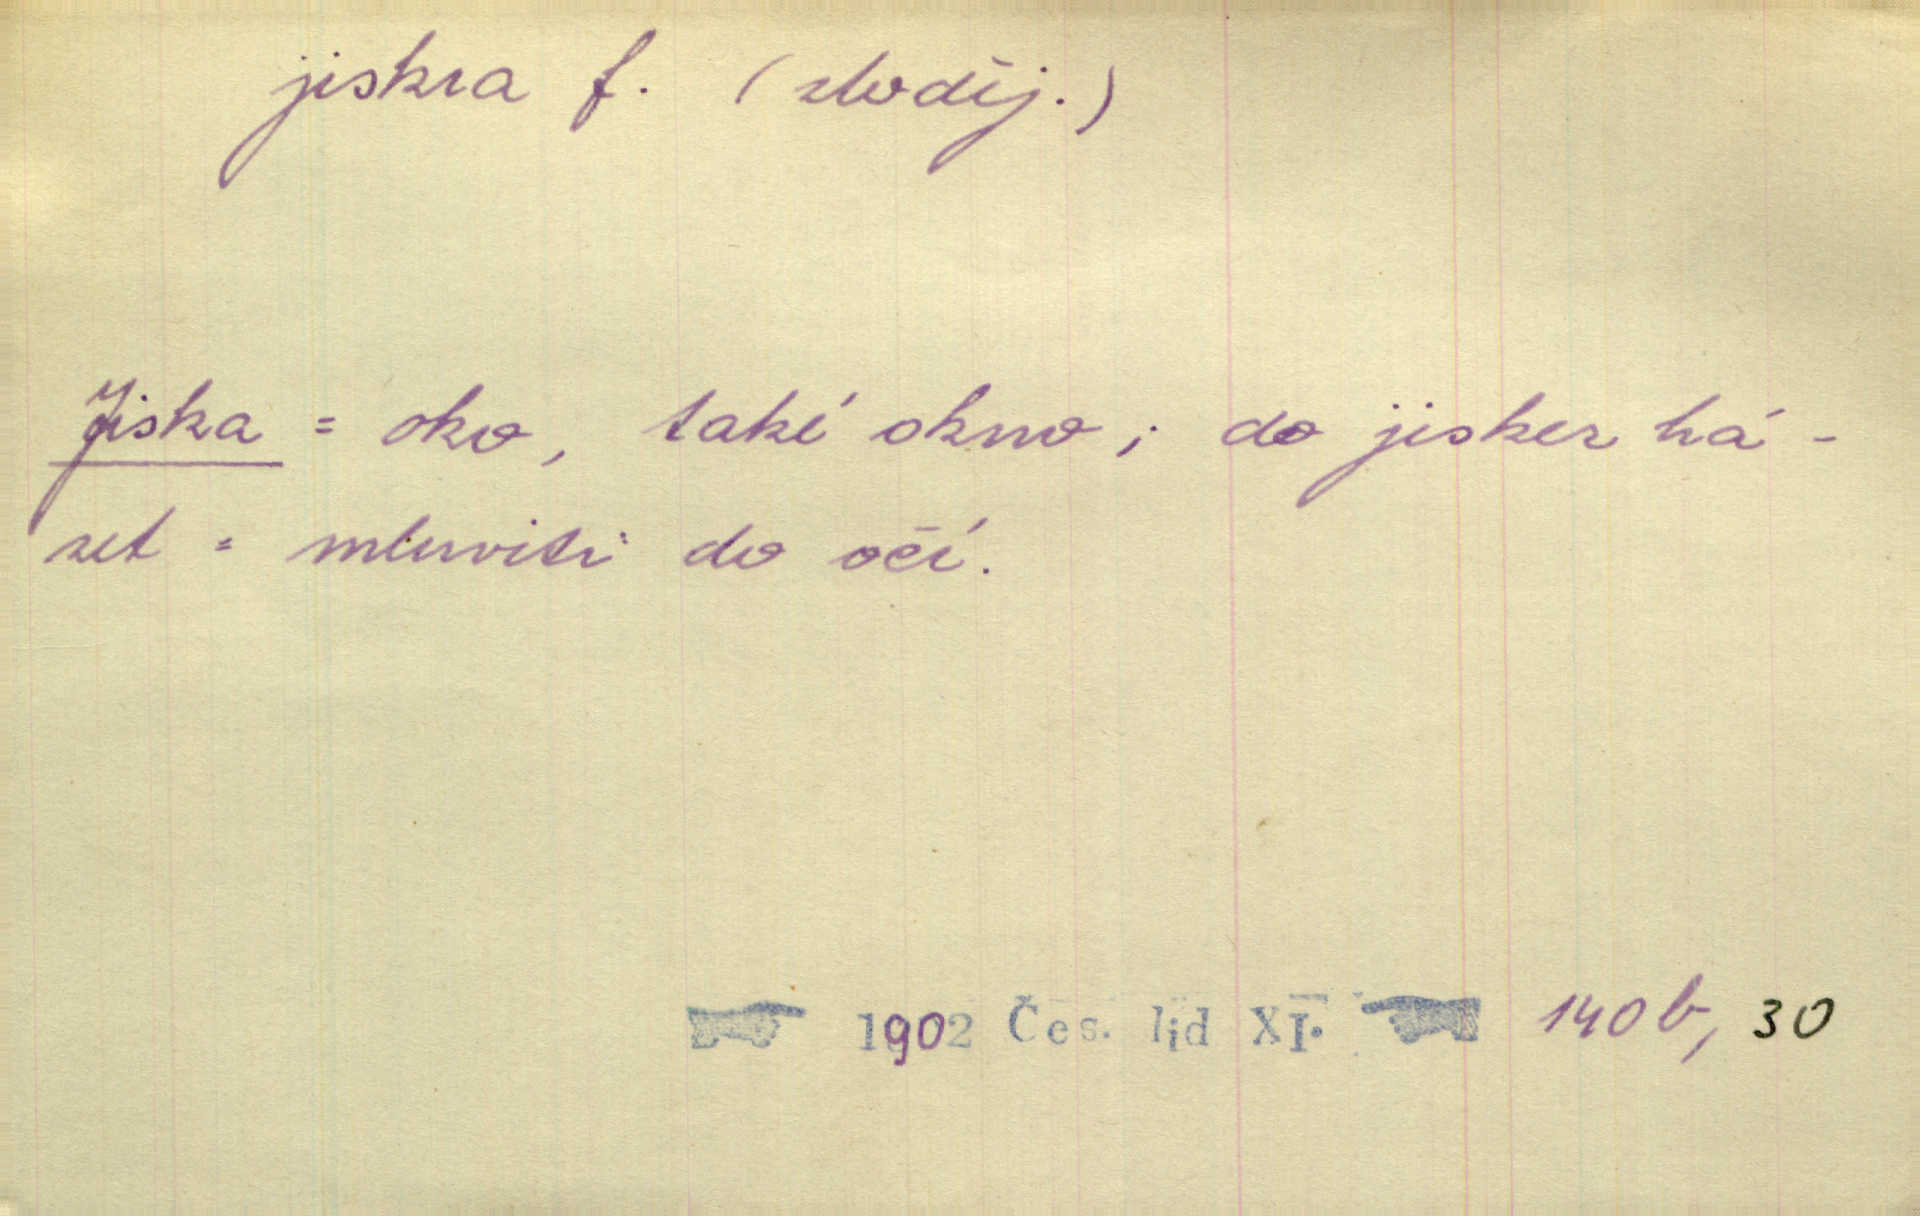 jiskra f. (zloděj.)
Jiska = oko, také okno; do jisker há-
zet = mluviti do očí.
1902 Čes. lid XI. 140b, 30